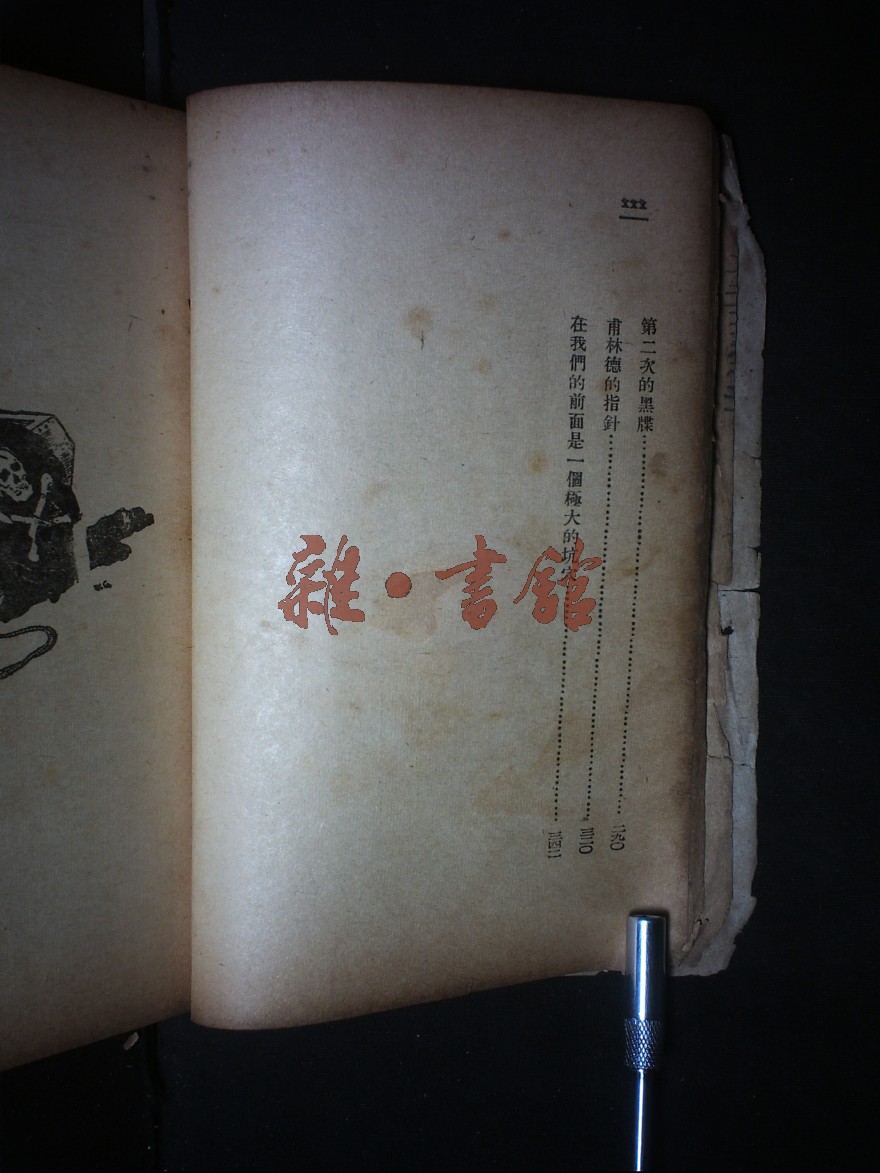 第二次的黑牒……二九〇
甫林德的指針……三二〇
在我們的前面是一個極大的坑穴……三四二
雜·書館